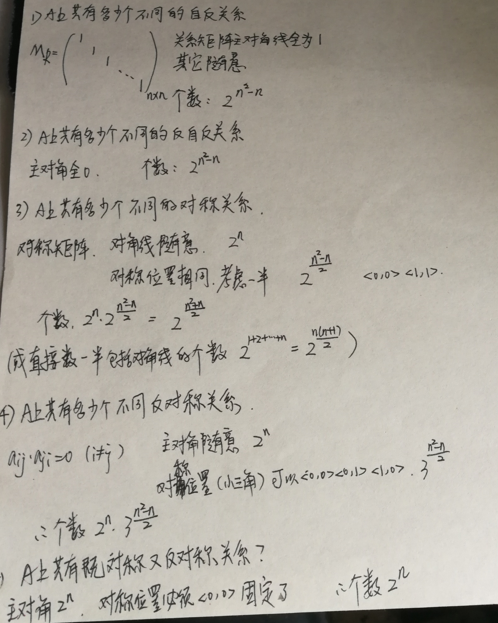 1) A上共有多少个不同的自反关系
M_R = ( 1 1 1 ⋱ 1 )n×n 关系矩阵主对角线全为1
其它随意
个数: 2^{n²-n}
2) A上共有多少个不同的反自反关系
主对角全0. 个数: 2^{n²-n}
3) A上共有多少个不同的对称关系.
对称矩阵. 对角线随意. 2^n
对称位置相同. 考虑一半 2^{\frac{n²-n}{2}} <0,0> <1,1>.
个数. 2^n·2^{\frac{n²-n}{2}} = 2^{\frac{n²+n}{2}}
(或直接数一半包括对角线的个数 2^{1+2+…+n} = 2^{\frac{n(n+1)}{2}})
4) A上共有多少个不同反对称关系.
aij·aji=0 (i≠j) 主对角随意 2^n
对称位置 (小三角) 可以<0,0><0,1><1,0>. 3^{\frac{n²-n}{2}}
∴个数 2^n·3^{\frac{n²-n}{2}}
) A上共有既对称又反对称关系?
主对角2^n. 对称位置必须<0,0>固定了 ∴个数2^n